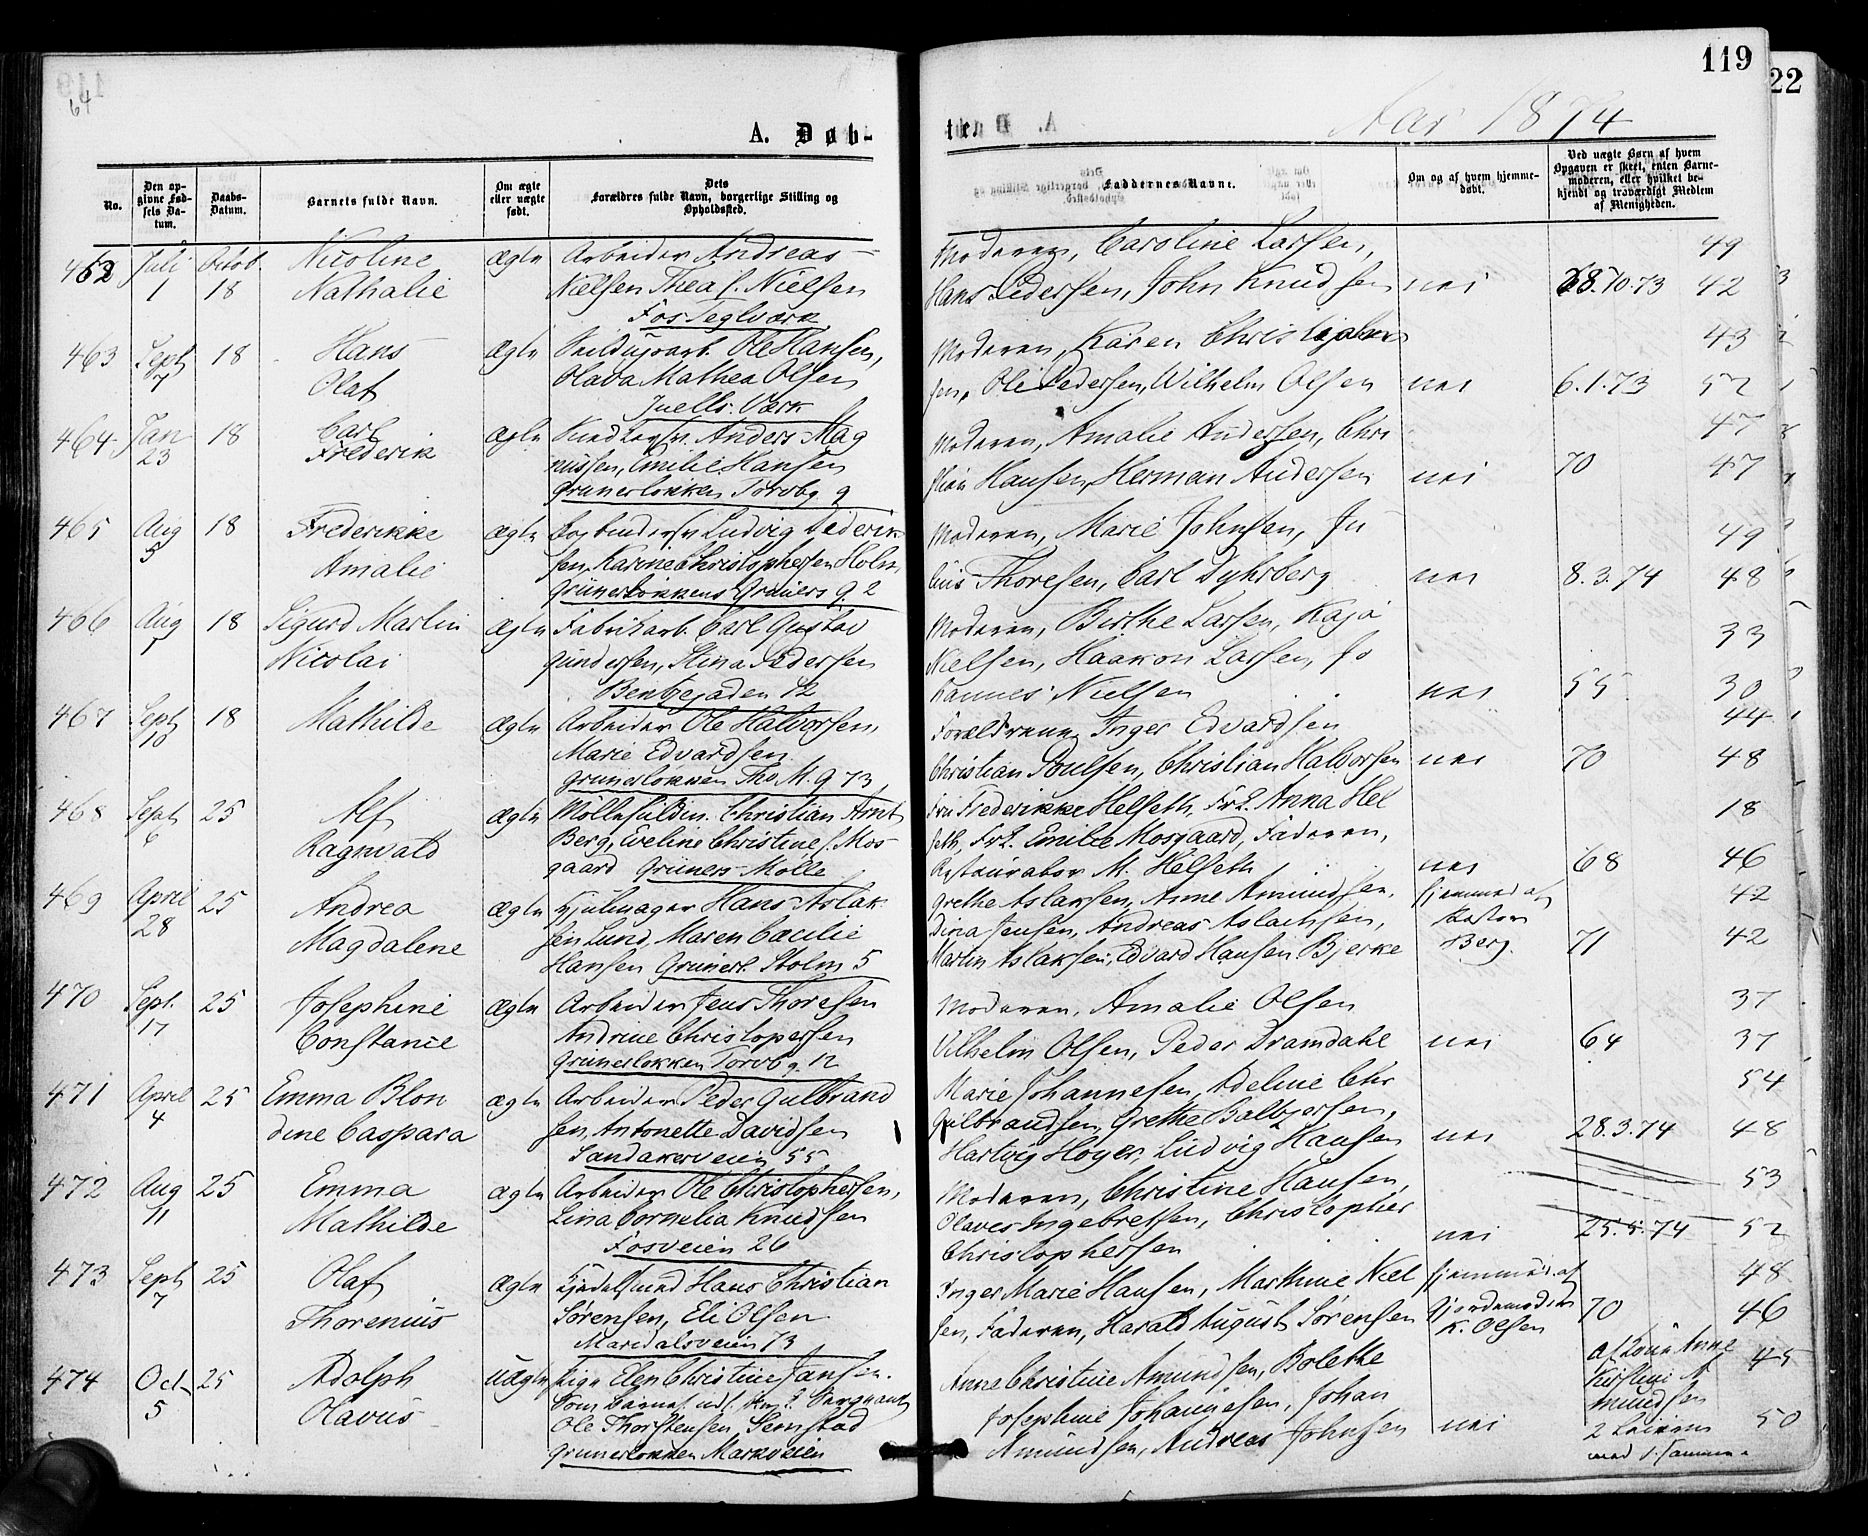 64
A. Døb-
119
22
Aar 1874
No.
Den op-
givne Fød-
sels Da-
tum.
Daabs-
Datum.
Barnets fulde Navn.
Om ægte
eller uægte
født.
Dets
Forældres fulde Navn, borgerlige Stilling og
Opholdssted.
Faddernes Navne.
Om og af hvem hjemme-
døbt.
Ved uægte Børn af hvem
Opgaven er skeet, enten Barne-
moderen, eller hvilket be-
kjendt og troværdigt Medlem
af Menigheden.
462 Juli 1 Octob. 18 Nicoline
Nathalie
ægte Arbeider Andreas
Nielsen Thea f. Nielsen
Fos Teglværk
Moderen, Caroline Larsen,
Hans Pedersen, John Knudsen nei 28.10.73 49
42
463 Sept 7 18 Hans
Olaf
ægte Ole Hansen,
Olava Mathea Olsen
Juells Værk
Moderen, Karen Christian
sen, Ole Pedersen, Wilhelm Olsen nei 6.1.73 43
52
464 Jan 23 18 Carl
Frederik
ægte Anders Mag
nussen, Emilie Hansen
Grünerløkken Torvbg. 9
Moderen, Amalie Andersen, Chri
stian Hansen, Herman Andersen nei 70 47
47
465 Aug 5 18 Frederikke
Amalie
ægte Bogbindersv. Ludvig Diderik
sen, Karine Christophersen Holm
Grünerløkkens Grüners g. 2
Moderen, Marie Johnsen, Ju
lius Thoresen, Carl Dyhrberg nei 8.3.74 49
48
466 Aug 7 18 Sigurd Martin
Nicolai
ægte Fabrikarb. Carl Gustav
Gundersen, Stina Pedersen
Bentsegaden 12
Moderen, Birthe Larsen, Kaja
Nielsen, Haakon Larsen, Jo
hannes Nielsen nei 55 33
30
467 Sept 10 18 Mathilde
ægte Arbeider Ole Halvorsen,
Marie Edvardsen
Grünerløkken Tho. M. g 73
Forældrene, Inger Edvardsen
Christian Poulsen, Christian Halvorsen nei 70 44
48
468 Sept 6 25 Alf
Ragnvald
ægte Christian Arnt
Berg, Eveline Christine f. Mos-
gaard Grüners Mølle
Fru Frederikke Helseth, Frk. Anna Hel
seth, Frk. Emilie Mosgaard, Faderen,
Restauratør M. Helseth nei 68 18
46
469 April 28 25 Andrea
Magdalene
ægte Hjulmager Hans Aslak
sen Lund, Maren Cæcilie
Hansen Grünerl. Stolm 5
Grethe Aslaksen, Anne Amundsen,
Dina Jensen, Andreas Aslachsen,
Martin Aslaksen, Edvard Hansen Bjerke
hjemmed. af
Pastor
Berg. 71 42
42
470 Sept. 17 25 Josephine
Constance
ægte Arbeider Jens Thoresen
Andrine Christopersen
Grünerløkken Torvbg. 12
Moderen, Amalie Olsen
Vilhelm Olsen, Peder Dramdahl nei 64 37
37
471 April 4 25 Emma Blon
dine Caspara
ægte Arbeider Peder Gulbrand
sen, Antonette Davidsen
Sandakerveien 55
Marie Johannesen, Adeline Chr
Gulbrandsen, Grethe Balbjersen,
Hartvig Høyer, Ludvig Hansen nei 28.3.74 54
48
472 Aug 11 25 Emma
Mathilde
ægte Arbeider Ole Christophersen,
Lina Cornelia Knudsen
Fosveien 26
Moderen, Christine Hansen,
Olaves Ingebretsen, Christopher
Christophersen nei 25.5.74 53
52
473 Sept 7 25 Olaf
Thorenius
ægte Hans Christian
Sørensen, Eli Olsen
Maridalsveien 73
Inger Marie Hansen, Marthine Niel
sen, Faderen, Harald August Sørensen
hjemmed. af
Gjordemoder
K. Olsen 70 48
46
474 Oct. 5 25 Adolph
Olavus
uægte Pige Elen Christine Jansen.
Som Barnef. udl.
Ole Thorstensen Semstad
Grünerløkken Markveien
Anne Christine Amundsen, Bolethe
Josephine Johannesen, Johan
Amundsen, Andreas Johnsen nei
af Kone Anne
Kirstine A
mundsen 45
50